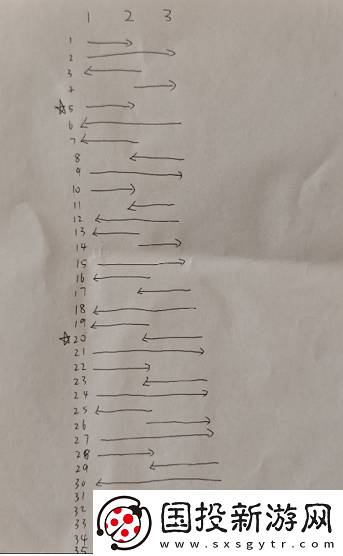 1 2 3
1
2
3
4
☆5
6
7
8
9
10
11
12
13
14
15
16
17
18
19
☆20
21
22
23
24
25
26
27
28
29
30
31
32
33
34
35
国投新游网
www.sxsgytr.com